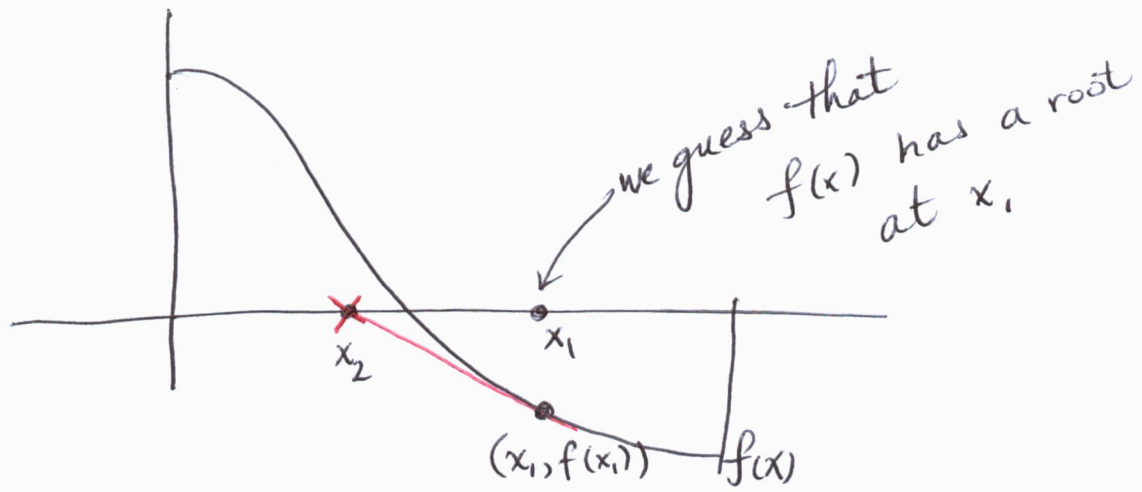 we guess that
f(x) has a root
at x₁
x₂
x₁
(x₁, f(x₁))
f(x)